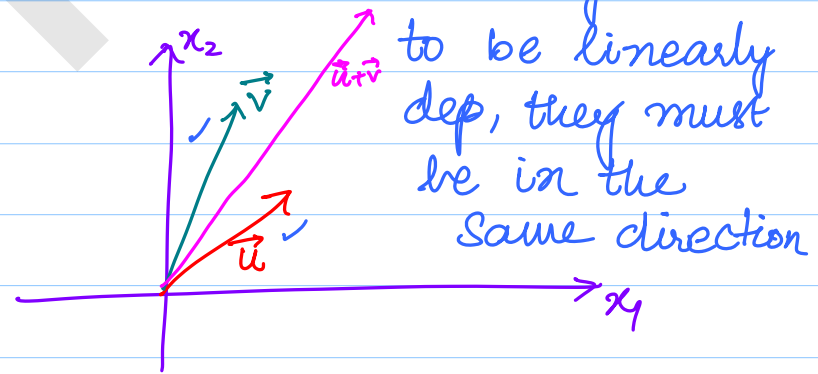 x₂
v⃗
u⃗+v⃗
u⃗
x₁
to be linearly
dep, they must
be in the
same direction